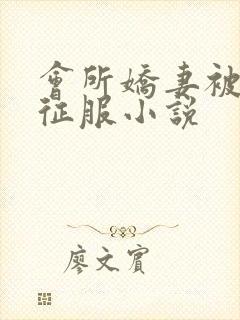 會所嬌妻被
征服小説
廖文賓